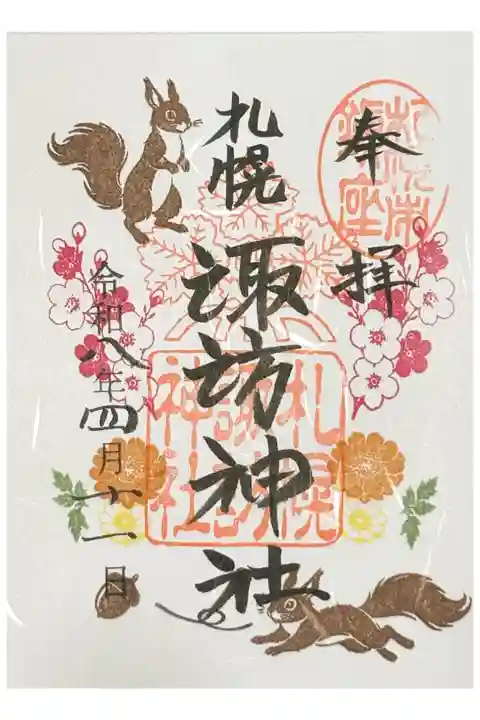 奉拝
札幌
諏訪神社
令和八年四月十一日
札幌
諏訪
神社